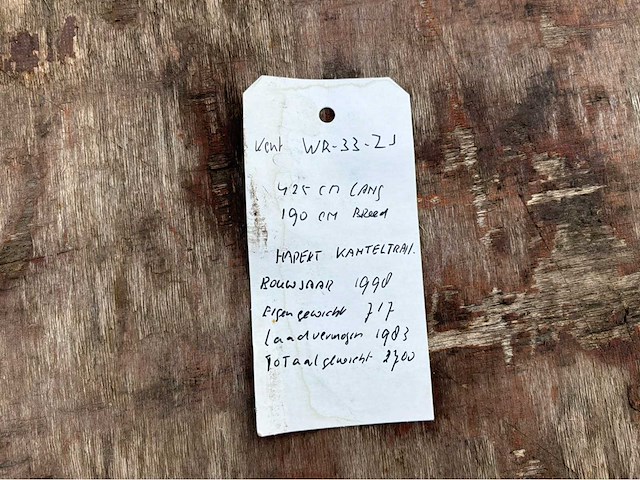 Kent WR-33-ZJ
425 cm LANG
190 cm BReed
HAPERT KANTELTRAI.
BOUWJAAR 1998
Eigengewicht 717
Laadvermogen 1983
TOTaalgewicht 2700